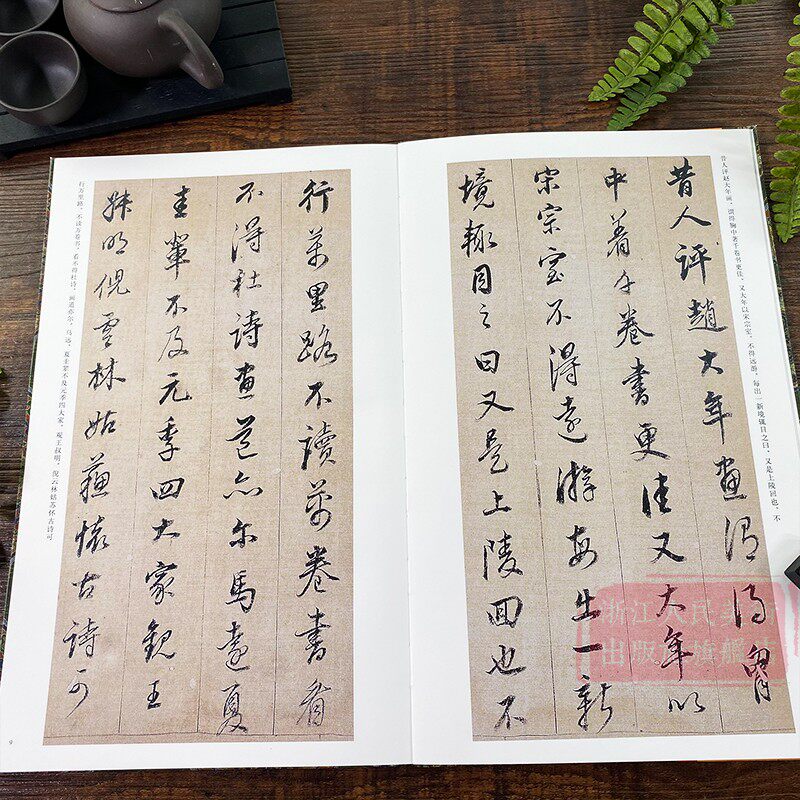 昔人评赵大年画，谓得胸中著千卷书更佳。又大年以宋宗室，不得远游，每出一新境辄目之曰，又是上陵回也。不
昔人評趙大年畫謂得胷
中著千卷書更佳又大年以
宋宗室不得遠游每出一新
境輒目之曰又是上陵回也不
行萬里路不讀萬卷書看
不得杜詩畫道亦尔馬遠夏
圭輩不及元季四大家觀王
叔明倪雲林姑蘇懷古詩可
行万里路，不读万卷书，看不得杜诗，画道亦尔。马远、夏圭辈不及元季四大家，观王叔明、倪云林姑苏怀古诗可
9
浙江人民美术
出版社旗舰店